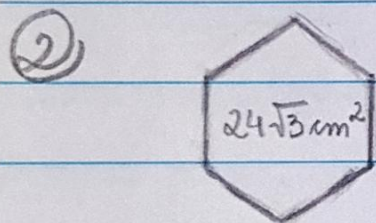 2
24√3 cm²